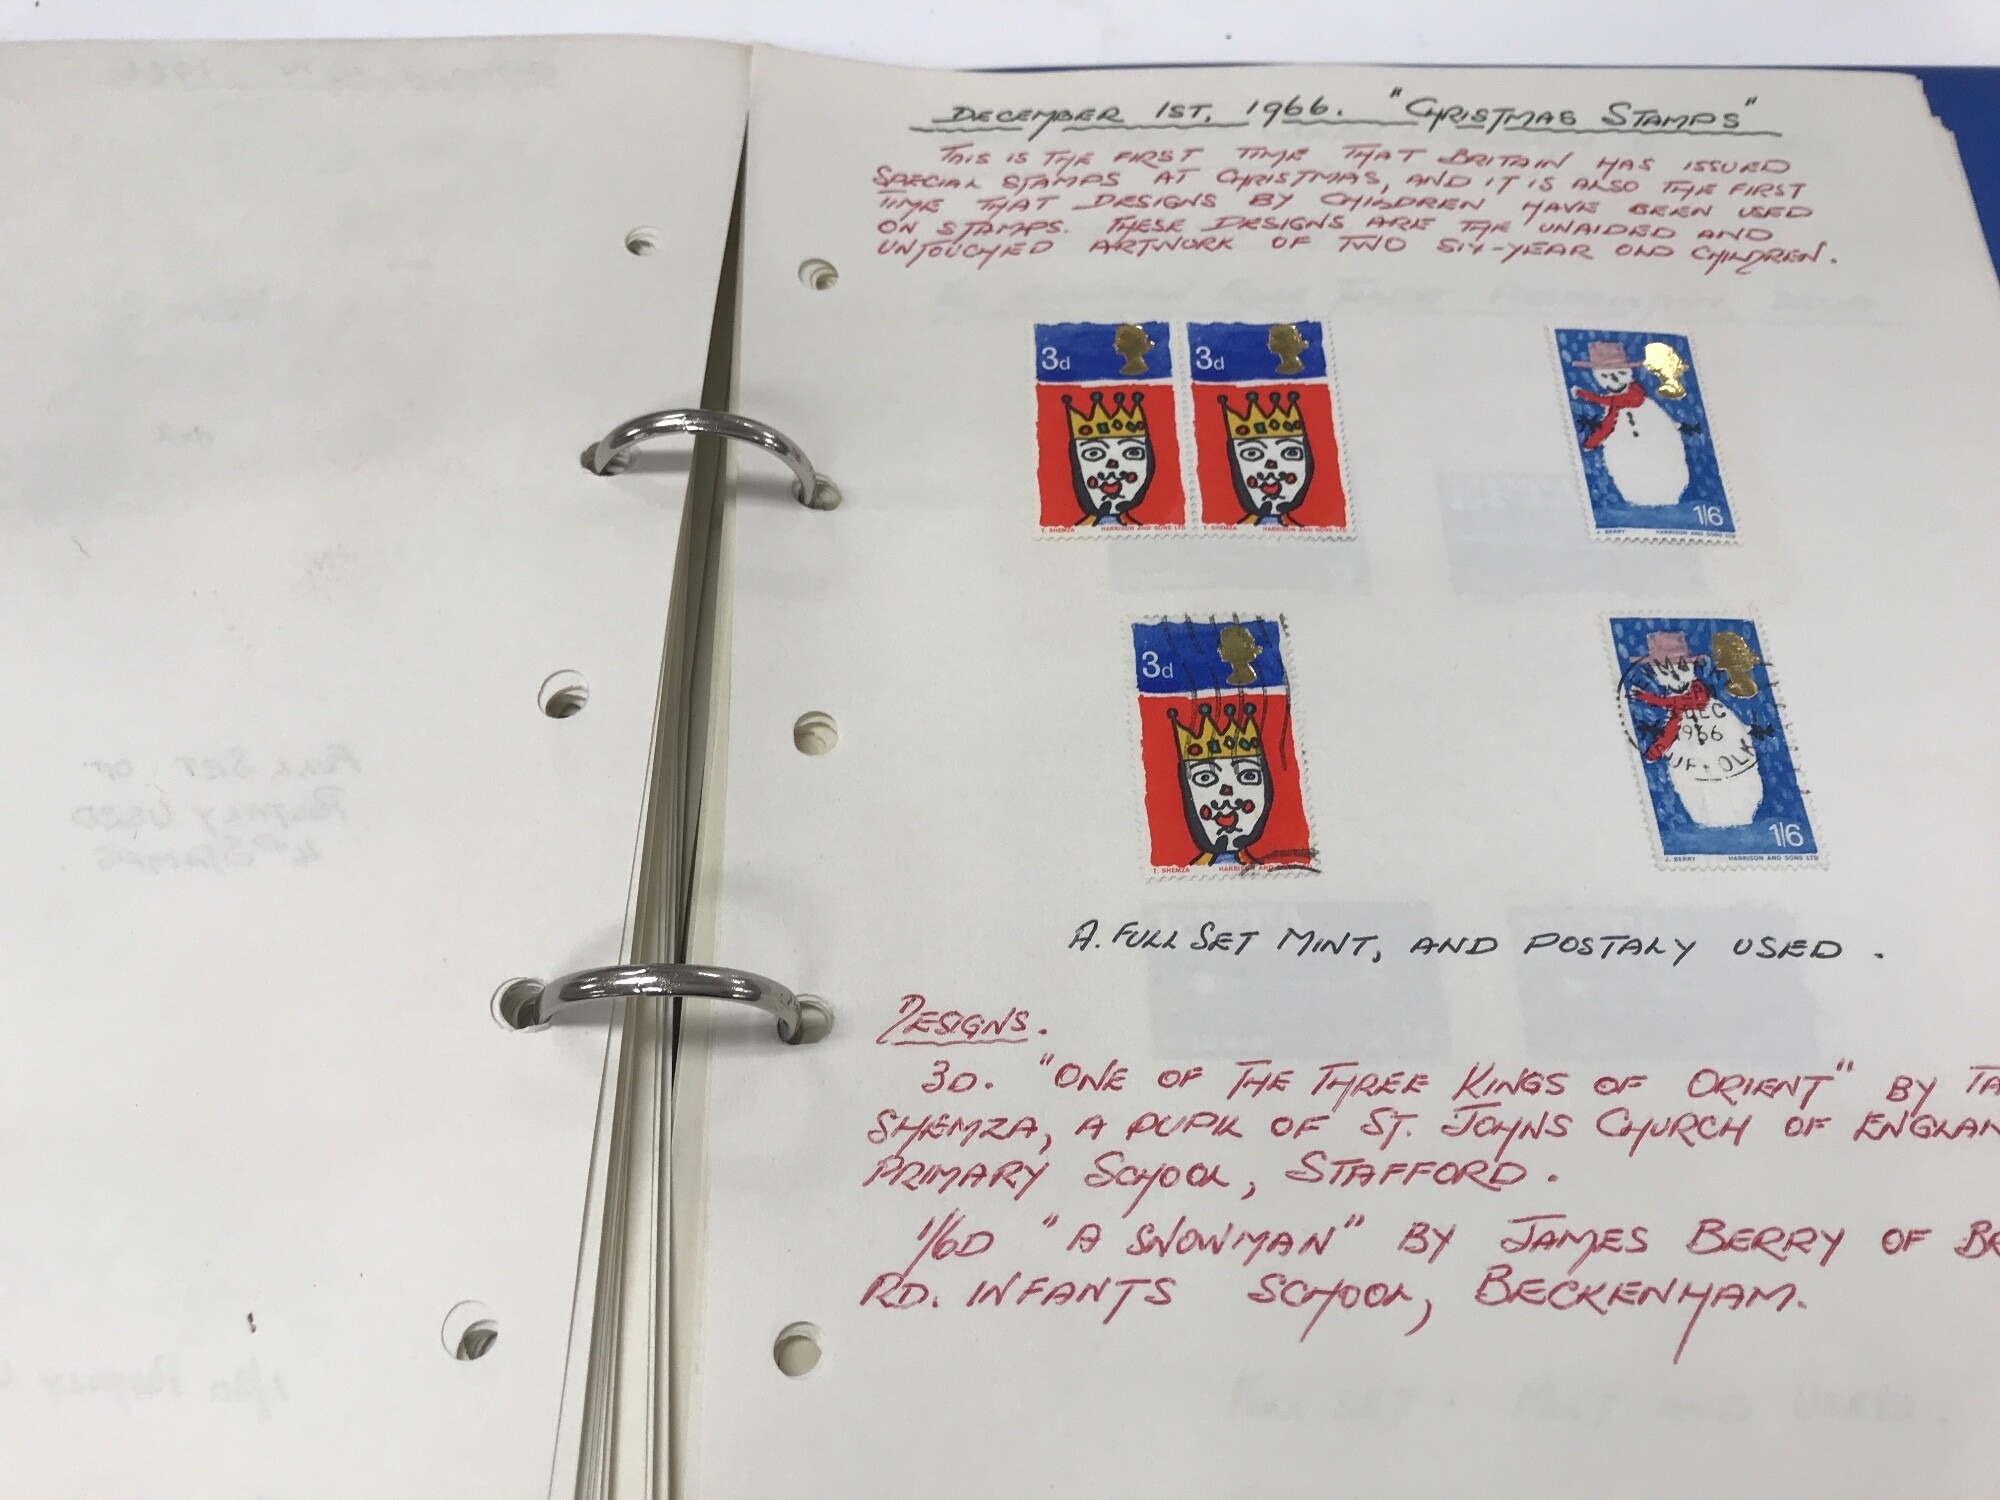 DECEMBER 1ST, 1966. "CHRISTMAS STAMPS"
THIS IS THE FIRST TIME THAT BRITAIN HAS ISSUED
SPECIAL STAMPS AT CHRISTMAS, AND IT IS ALSO THE FIRST
TIME THAT DESIGNS BY CHILDREN HAVE BEEN USED
ON STAMPS. THESE DESIGNS ARE THE UNAIDED AND
UNTOUCHED ARTWORK OF TWO SIX-YEAR OLD CHILDREN.
3d
T. SHEMZA HARRISON AND SONS LTD
3d
T. SHEMZA HARRISON AND SONS LTD
1/6
J. BERRY HARRISON AND SONS LTD
3d
T. SHEMZA HARRISON AND
NEWMAR
DEC
1966
SUFFOLK
1/6
J. BERRY HARRISON AND SONS LTD
A. FULL SET MINT, AND POSTALY USED.
DESIGNS.
3D. "ONE OF THE THREE KINGS OF ORIENT" BY TA
SHEMZA, A PUPIL OF ST. JOHNS CHURCH OF ENGLAN
PRIMARY SCHOOL, STAFFORD.
1/6D "A SNOWMAN" BY JAMES BERRY OF BR
RD. INFANTS SCHOOL, BECKENHAM.